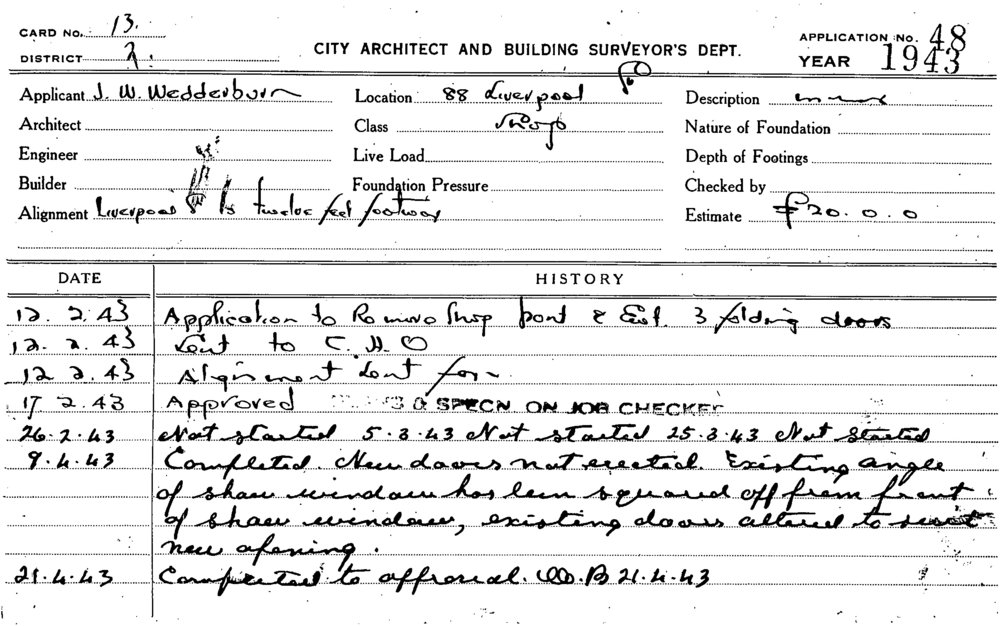 CARD NO. 13.
DISTRICT 2.
CITY ARCHITECT AND BUILDING SURVEYOR'S DEPT.
APPLICATION No. 48
YEAR 1943
Applicant J. W. Wedderburn
Location 88 Liverpool
Description
Architect
Class Shop
Nature of Foundation
Engineer
Live Load
Depth of Footings
Builder
Foundation Pressure
Checked by
Alignment Liverpool is twelve feet footway
Estimate £20.0.0
DATE HISTORY
12. 2. 43 Application to Remove Shop front & 3 folding doors
12. 2. 43 Sent to C. H. O
12. 2. 43 Alignment sent for
17 2. 43 Approved & SPECN ON JOB CHECKED
26.2.43 Not started 5.3.43 Not started 25.3.43 Not started
9.4.43 Completed. New doors not erected. Existing angle
of shaw window has been squared off from front
of shaw window, existing doors altered to
new opening.
21.4.43 Completed to approval. B 21.4.43